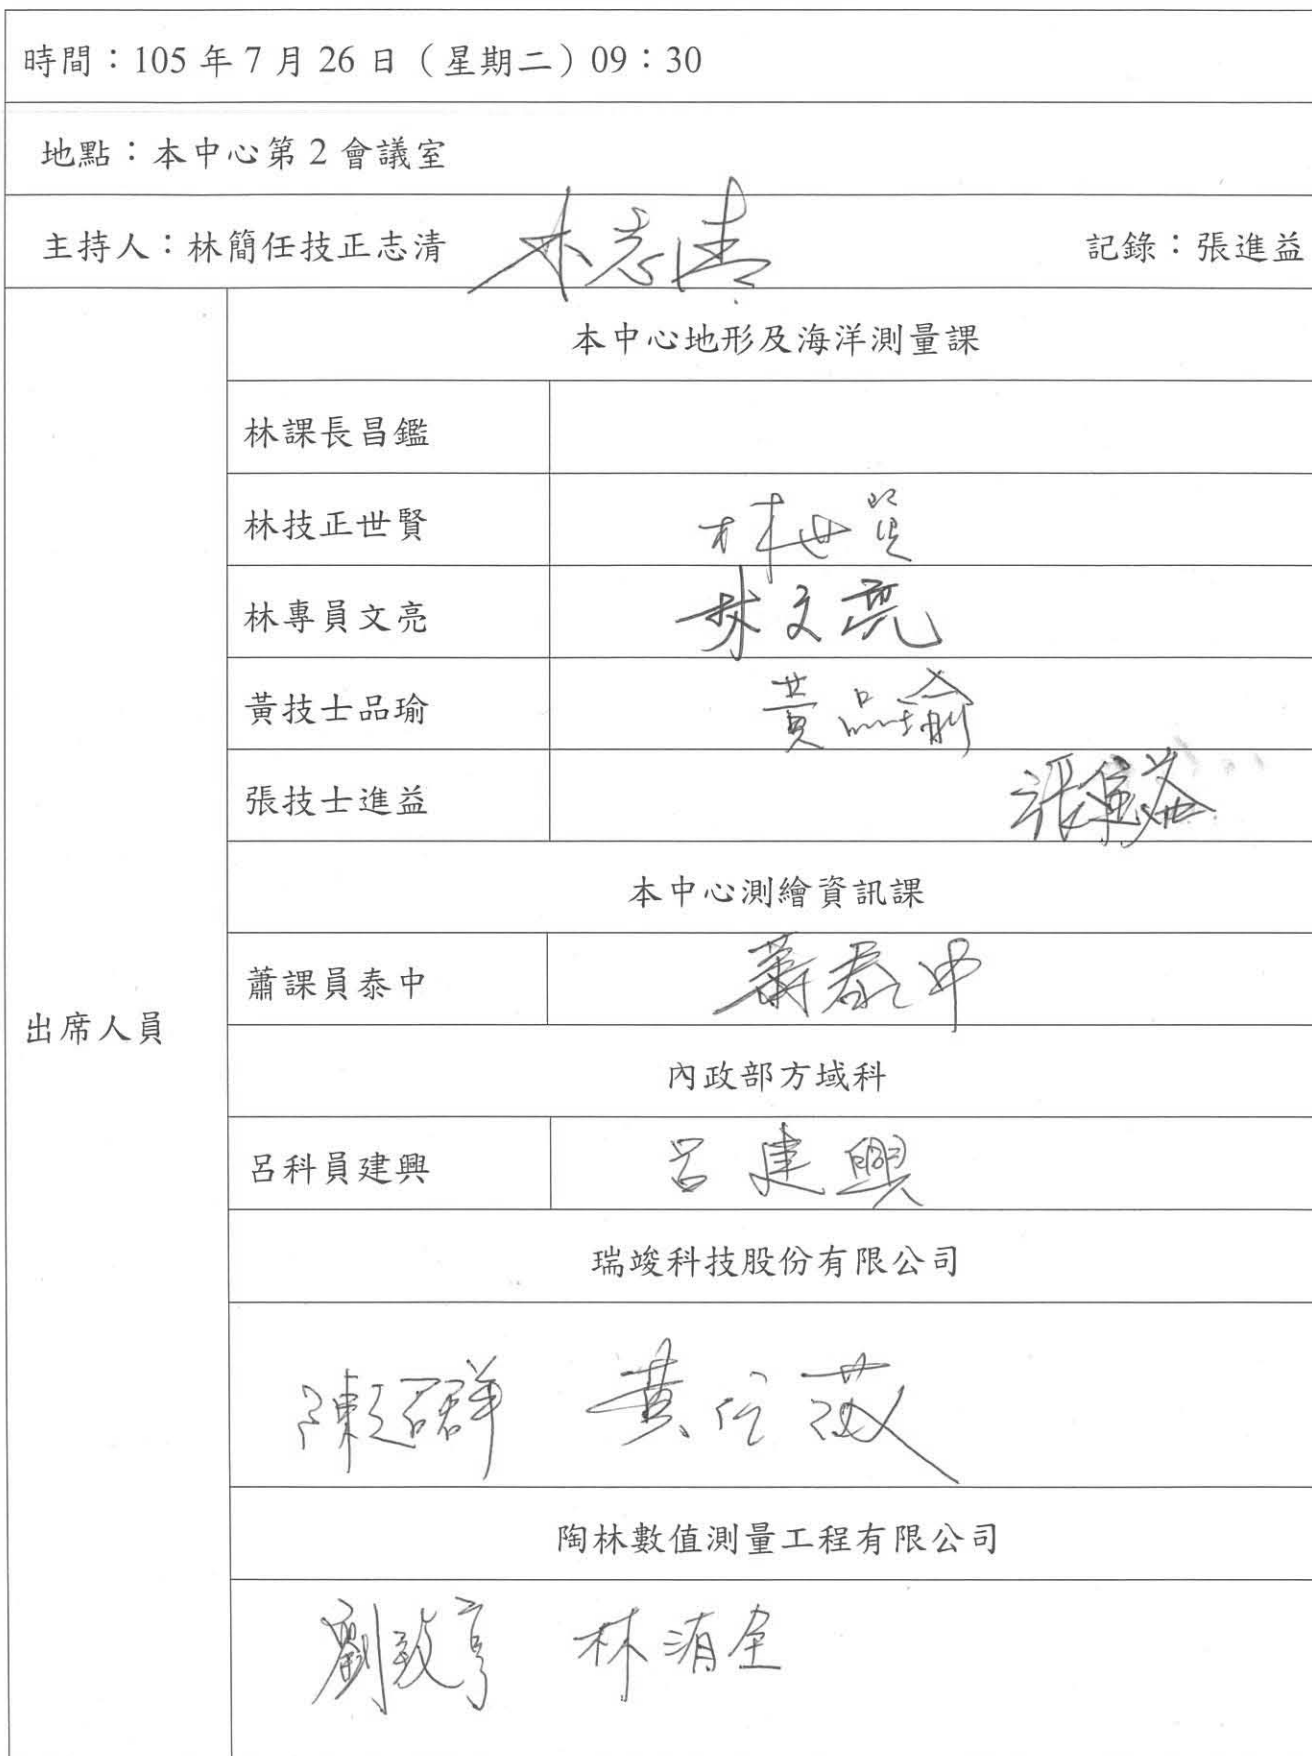 時間：105 年 7 月 26 日（星期二）09：30
地點：本中心第 2 會議室
主持人：林簡任技正志清 林志清 記錄：張進益
本中心地形及海洋測量課
林課長昌鑑
林技正世賢 林世賢
林專員文亮 林文亮
黃技士品瑜 黃品瑜
張技士進益 張進益
本中心測繪資訊課
蕭課員泰中 蕭泰中
出席人員
內政部方域科
呂科員建興 呂建興
瑞竣科技股份有限公司
黃 薇
陶林數值測量工程有限公司
劉致亨 林洧全